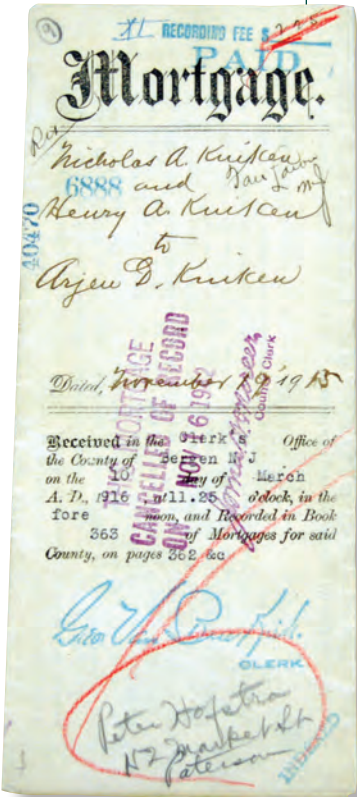 9
XL RECORDING FEE $
PAID
Mortgage.
Nicholas A. Kuiken
6888 and Fair Lawn NJ
Henry A. Kuiken
40470
to
Arjen D. Kuiken
Dated, November 19 1915
THIS MORTGAGE
CANCELLED OF RECORD
ON NOV 6 19
County Clerk
Received in the Clerk's Office of
the County of Bergen N J
on the 10 day of March
A. D., 1916 at 11.25 o'clock, in the
fore noon, and Recorded in Book
363 of Mortgages for said
County, on pages 362 &c
CLERK
Peter Hofstra
N2 Market St
Paterson
INDEXED